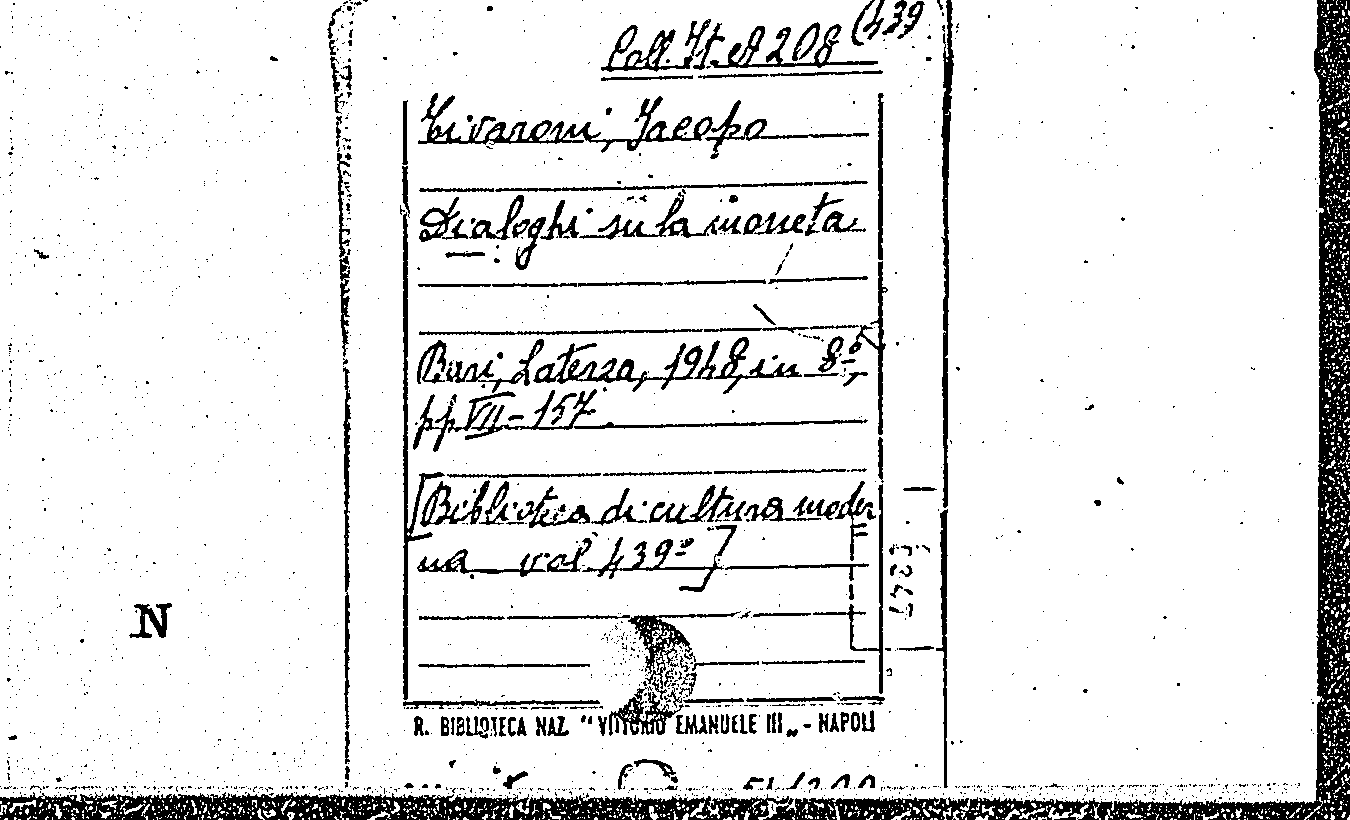 Coll. It. A 208 (439
Tivaroni, Jacopo
Dialoghi su la moneta
Bari, Laterza, 1948, in 8º,
pp VII-157.
[Biblioteca di cultura moder
na vol. 439º]
N
R. BIBLIOTECA NAZ. "VITTORIO EMANUELE III„ - NAPOLI